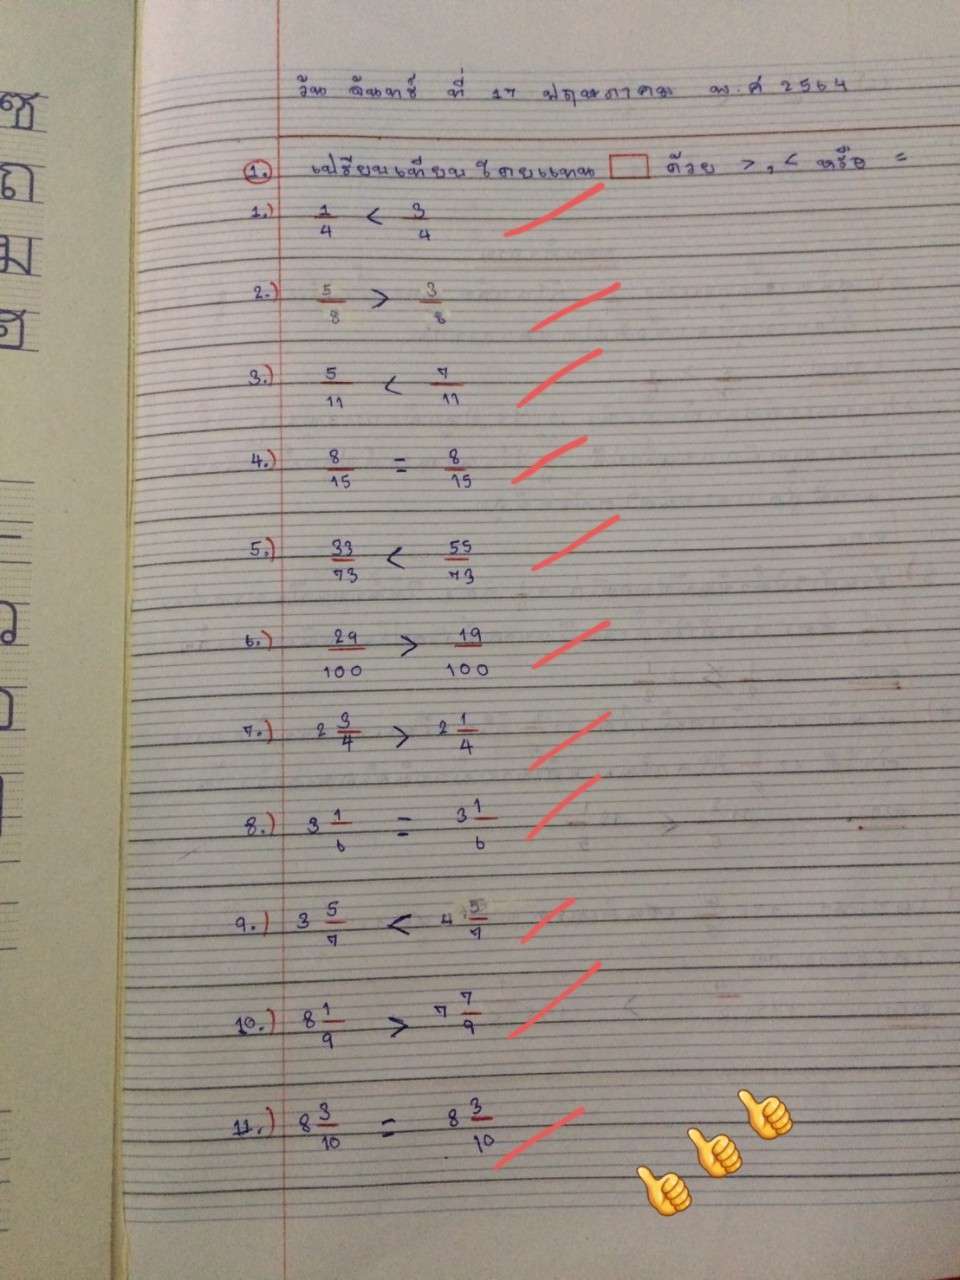 วัน จันทร์ ที่ 17 พฤษภาคม พ.ศ 2564
1. เปรียบเทียบโดยแทน □ ด้วย >, < หรือ =
1.) 1/4 < 3/4
2.) 5/8 > 3/8
3.) 5/11 < 7/11
4.) 8/15 = 8/15
5.) 33/73 < 55/73
6.) 29/100 > 19/100
7.) 2 3/4 > 2 1/4
8.) 3 1/6 = 3 1/6
9.) 3 5/7 < 4 5/7
10.) 8 1/9 > 7 7/9
11.) 8 3/10 = 8 3/10